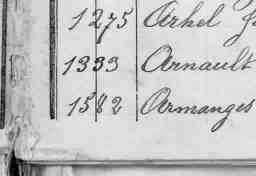 1275 Arhel
1333 Arnault
1582 Armanges